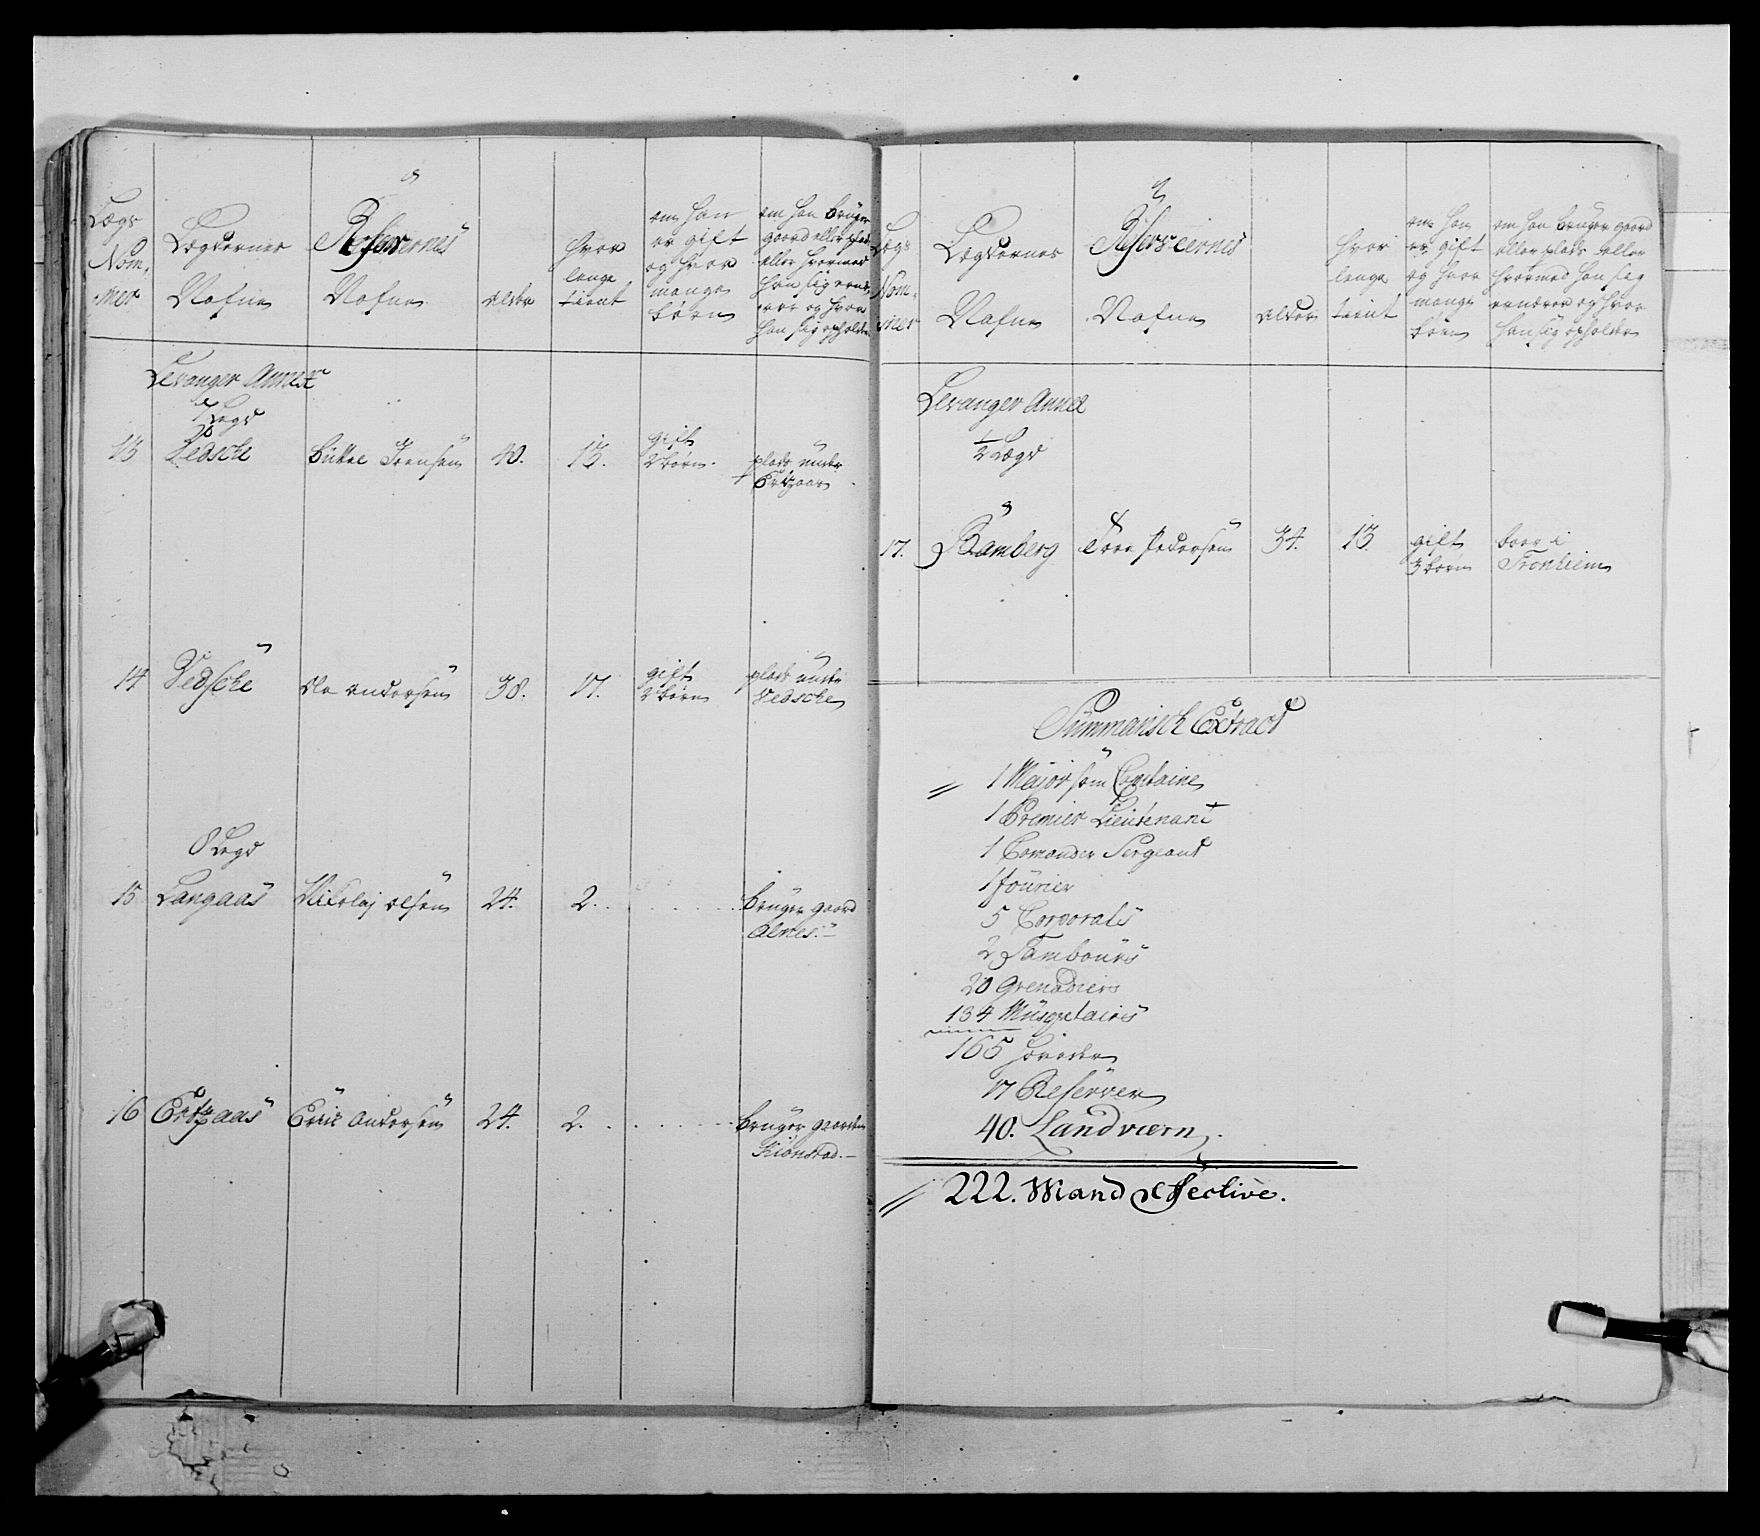 Lægs
Nom,
mer
Lægdernes
Nafne
Reserverneß
Nafne
alder
hvor
lenge
tient
om han
er gift
og hvor
mange
børn
om han bruger
gaard eller plads
eller hvormed
han sig ernæ-
rer og hvor
han sig opholder
Levanger Annex
7 Legd
13 Vedsche
Jrensen 40. 13. gift
2 børn.
plads under
14 Vedsche Ole Andersen 38. 17. gift
2 børn
plads under
Vedsche
8 Legd
15 Langaas Nikolaj Olsen 24. 2. bruger gaard
Alnes.
16 Eric Andersen 24. 2. bruger gaarden
Lægs
Nom-
mer
Lægdernes
Nafne
Reserveernes
Nafne
alder
hvor
lenge
tient
om han
er gift
og hvor
mange
børn
om han bruger gaard
eller plads eller
hvormed han sig
ernærer og hvor
han sig opholder
Levanger Annex
1/2 Lægd
17. Bamberg Tore Pedersen 34. 13. gift
3 børn
boer i
Tronhiem
Summarisch Extract
1 Major som Capitaine
1 Premier Lieutenant
1 Comander Sergeant
1 fourier
5 Corporals
2 Tambours
20 Grenadiers
134 Musquetairs
165 hoveder
17 Reserver
40. Landværn.
222. Mand Effective.